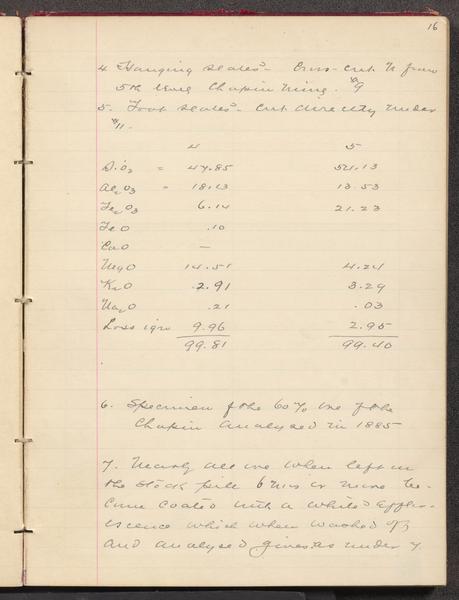 16
4 Hanging slates - Cross-cut N from
5th level Chapin Mine. #9
5. Foot slates - Cut directly under
#11.
4 5
SiO2 = 47.85 54.13
Al2O3 = 18.13 13.53
Fe2O3 6.14 21.23
FeO .10
CaO —
MgO 14.51 4.24
K2O 2.91 3.29
Na2O .21 .03
Loss ign 9.96 2.95
99.81 99.40
6. Specimen of the 60% ore of the
Chapin analysed in 1885
7. Nearly all ore when left in
the stock pile 6 mos or more be-
come coated with a white efflor-
escence which when washed off
and analysed gives as under 7.